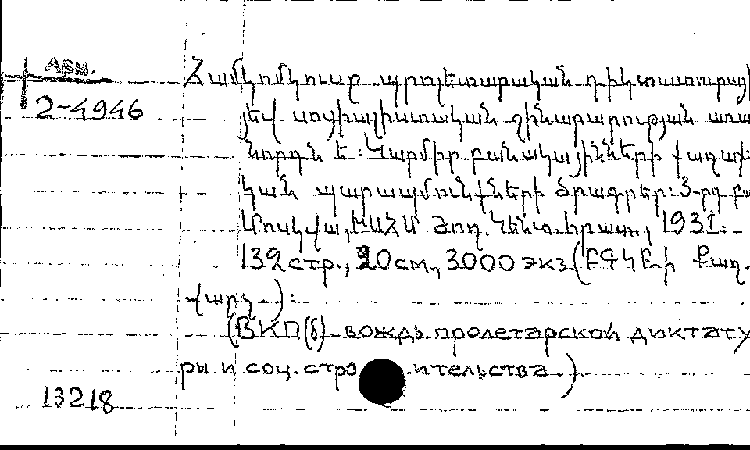 Арм.
2-4946
Համկոմկուսը պրոլետարական դիկտատուրայի
յեվ սոցիալիստական շինարարության առա
նորդն ե: Կարմիր բանակայինների քաղաք
կան պարապմունքների ծրագրեր: 3-րդ
Մոսկվա, ԽՍՀՄ Ժող. Կենտ. հրատ., 1931.
132 стр., 20 см., 3000 экз. (ԲԳԿԲ-ի Քաղ.
վարչ.):
(ВКП(б) - вождь пролетарской диктату
ры и соц. строительства.)
13218